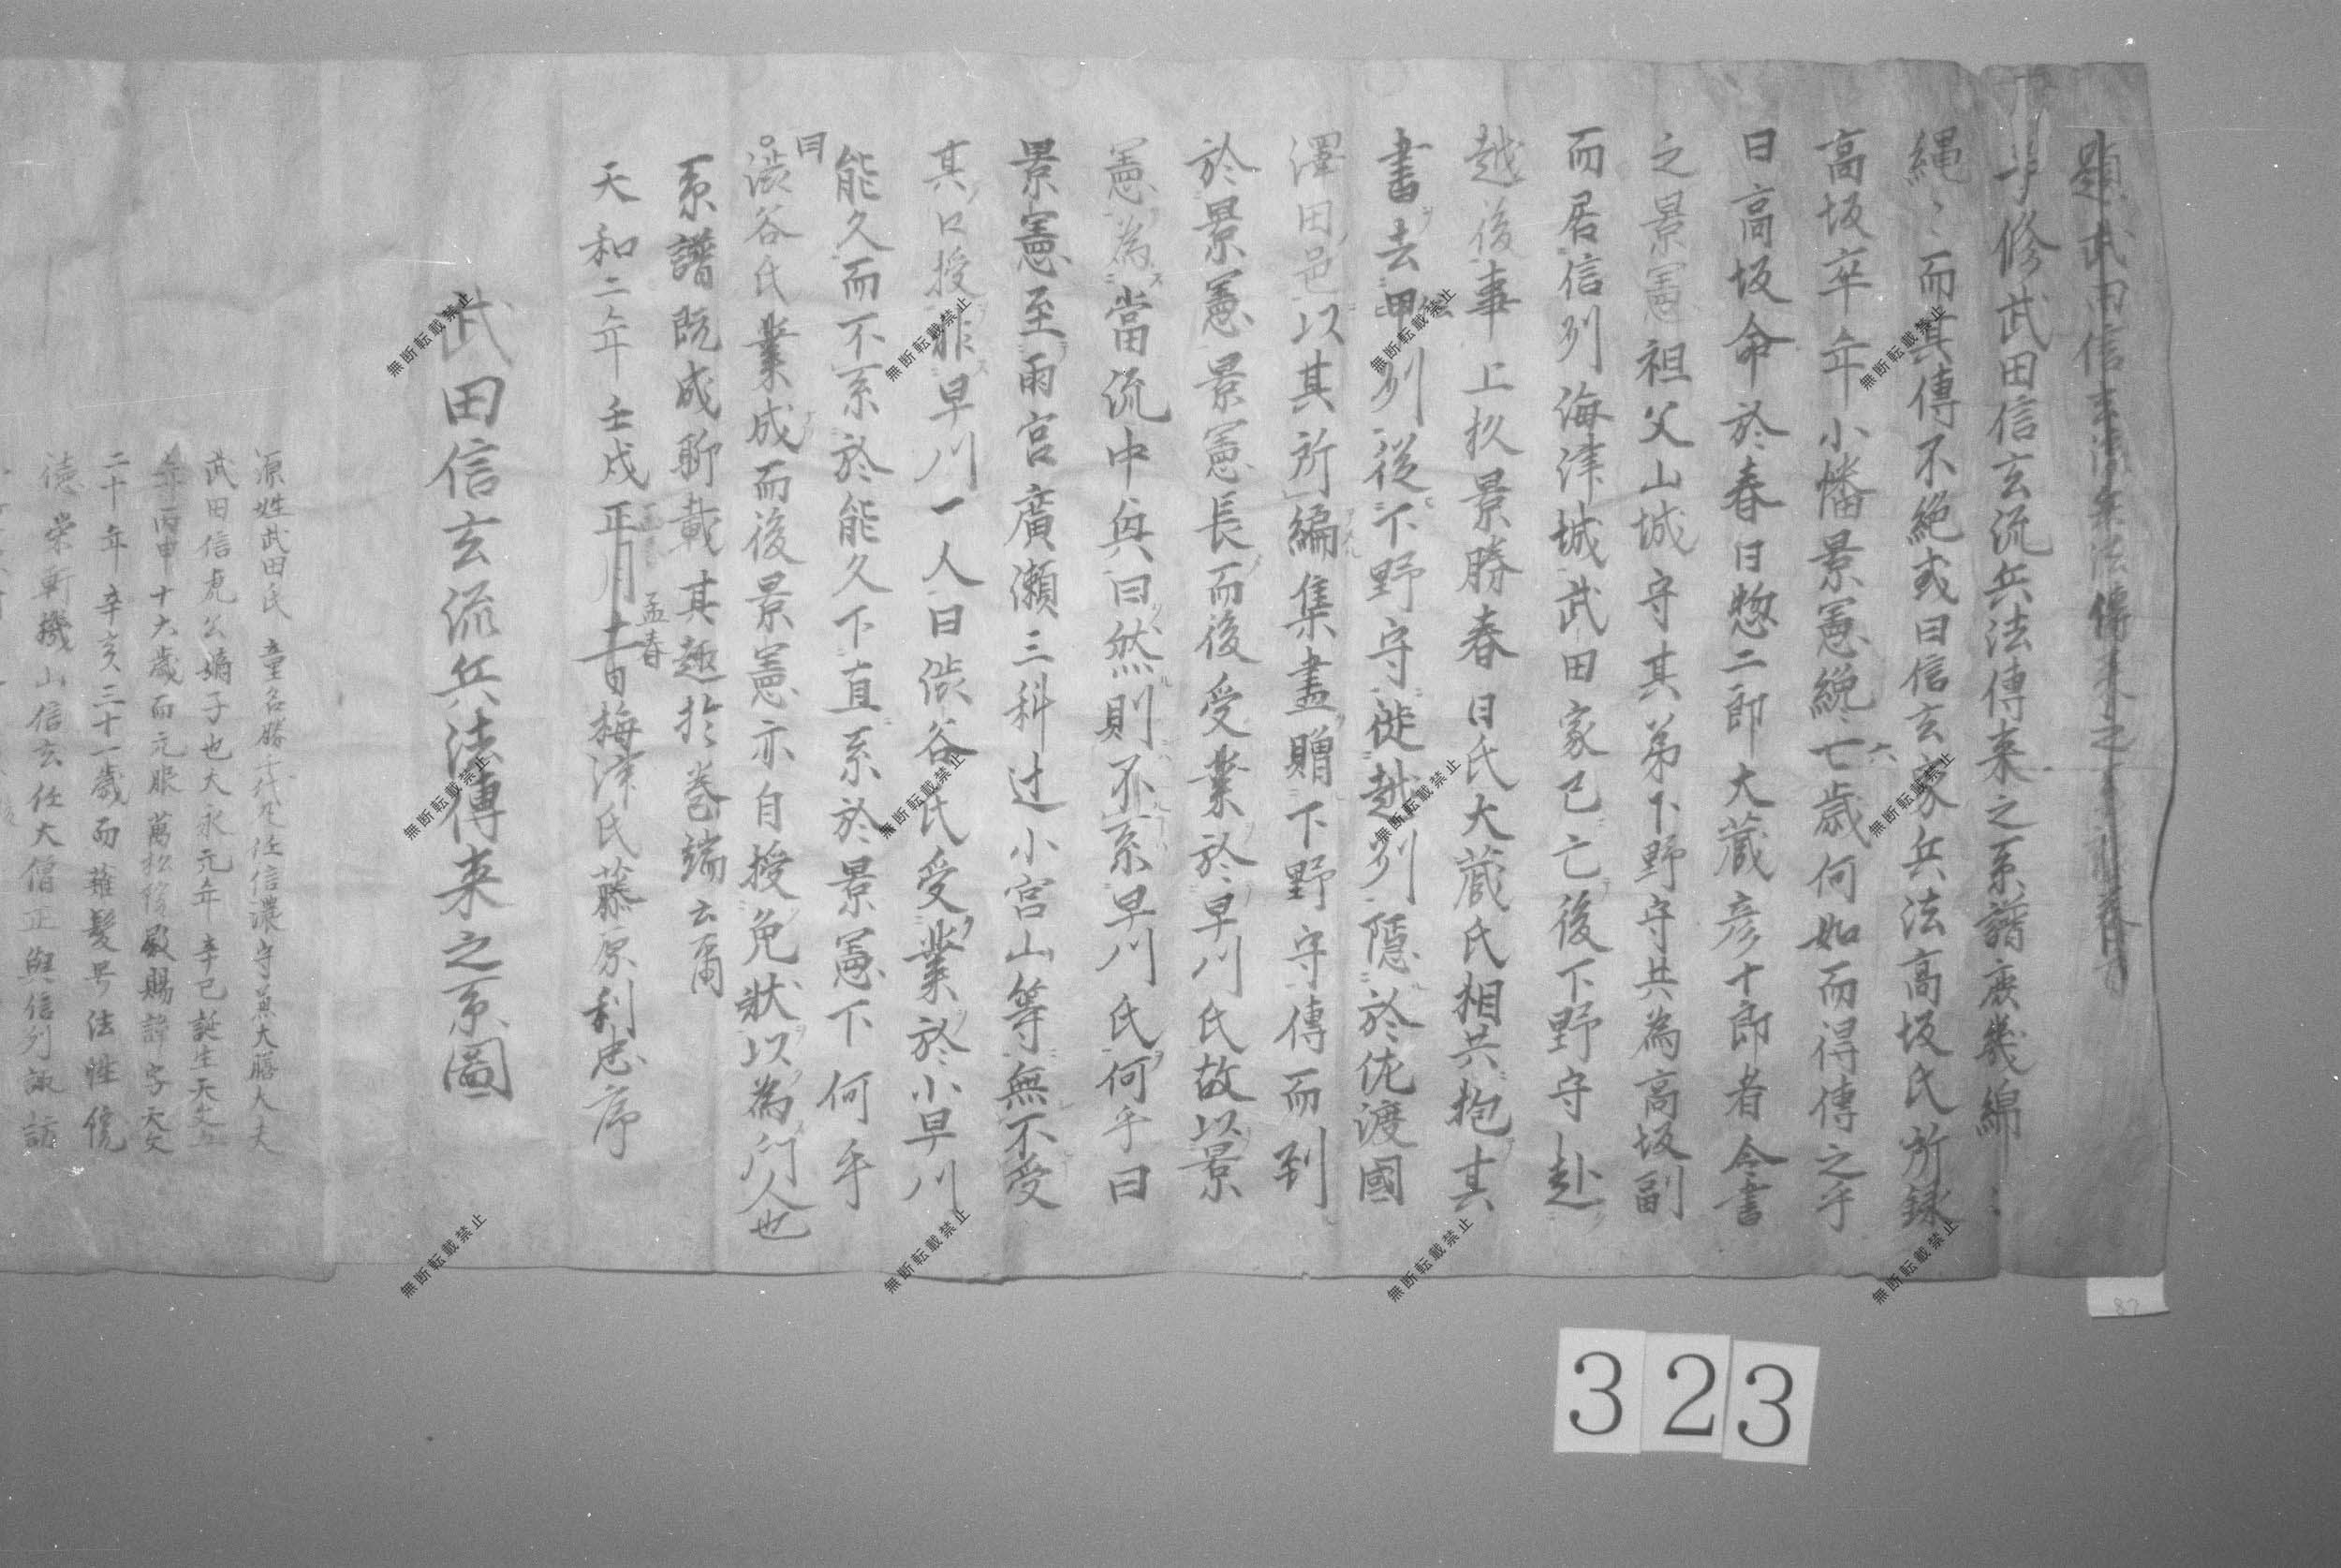 題武田信玄流兵法傳来之
予修武田信玄流兵法傳来之系譜庶幾綿〻
縄〻而其傳不絶或曰信玄家兵法高坂氏所録
高坂卒年小幡景憲纔七歳何如而得傳之乎
六
曰高坂命於春日惣二郎大蔵彦十郎者令書
之景憲祖父山城守其弟下野守共為高坂副
而居信列海津城武田家已亡後下野守赴
越後事上杦景勝春日氏大蔵氏相共抱其
書去甲列後下野守徙越列隠於佐渡國
澤田邑以其所編集盡贈下野守傳而到
於景憲景憲長而後受業於早川氏故以景
憲為當流中興曰然則不系早川氏何乎曰
景憲至雨宮廣瀬三科辻小宮山等無不受
其口授非早川一人曰澁谷氏受業於小早川
能久而不系於能久下直系於景憲下何乎
曰
澁谷氏業成而後景憲亦自授免状以為門人也
系譜既成聊載其趣於巻端云爾
孟春
天和二年壬戌正月吉日梅津氏藤原利忠序
武田信玄流兵法傳来之系圖
源姓武田氏童名勝千代任信濃守兼大膳大夫
武田信虎公嫡子也大永元年辛巳誕生天文五
年丙申十六歳而元服萬松院殿賜諱字天文
二十年辛亥三十一歳而薙髪号法性院
徳栄軒機山信玄任大僧正與信列諏訪
87
323
無断転載禁止
無断転載禁止
無断転載禁止
無断転載禁止
無断転載禁止
無断転載禁止
無断転載禁止
無断転載禁止
無断転載禁止
無断転載禁止
無断転載禁止
無断転載禁止